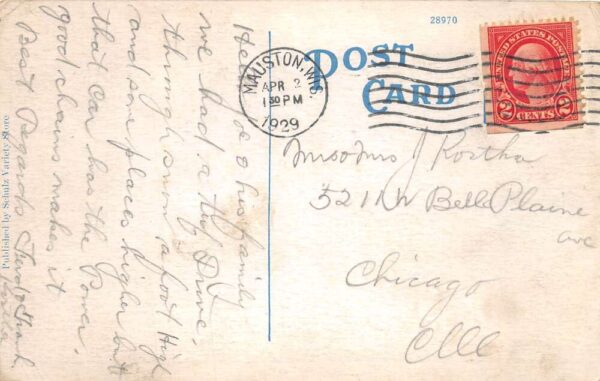 28970
POST
CARD
MAUSTON, WIS.
APR 2
1 30 PM
1929
UNITED STATES POSTAGE
2 CENTS 2
Hello Joe & his family
we had a tuf Drive,
through snow a foot High
and some places higher but
that Car has the Power,
good chains makes it
Best Regards
Mr & Mrs J
521 N Belle Plaine
ave
Chicago
Ill
Published by Schulz Variety Store